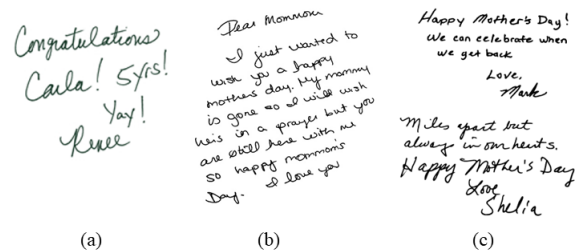 Congratulations
Carla! 5yrs!
Yay!
Renee
(a)
Dear Mommom
I just wanted to
wish you a happy
mothers day. My mommy
is gone so I will wish
her's in a prayer but you
are still here with me
so happy mommoms
Day. I love you
(b)
Happy Mother's Day!
We can celebrate when
we get back
Love,
Mark
Miles apart but
always in our hearts.
Happy Mother's Day
Love
Shelia
(c)